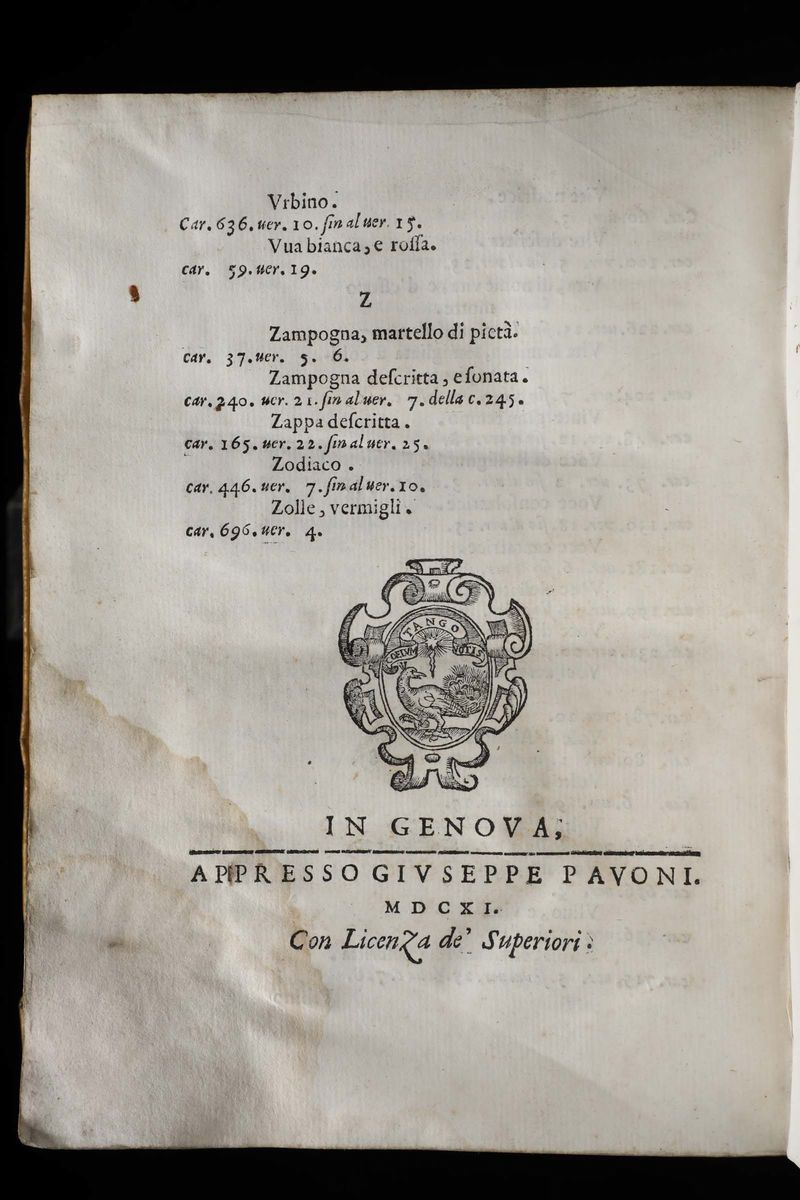 Vrbino.
Car. 636. uer. 10. fin al uer. 15.
Vua bianca, e roſſa.
car. 59. uer. 19.
Z
Zampogna, martello di pietà.
car. 37. uer. 5. 6.
Zampogna deſcritta, e ſonata.
car. 240. uer. 21. fin al uer. 7. della c. 245.
Zappa deſcritta.
car. 165. uer. 22. fin al uer. 25.
Zodiaco.
car. 446. uer. 7. fin al uer. 10.
Zolle, vermigli.
car. 696. uer. 4.
TANGO
VOTIS
IN GENOVA,
APPRESSO GIVSEPPE PAVONI.
MDCXI.
Con Licenza de' Superiori.